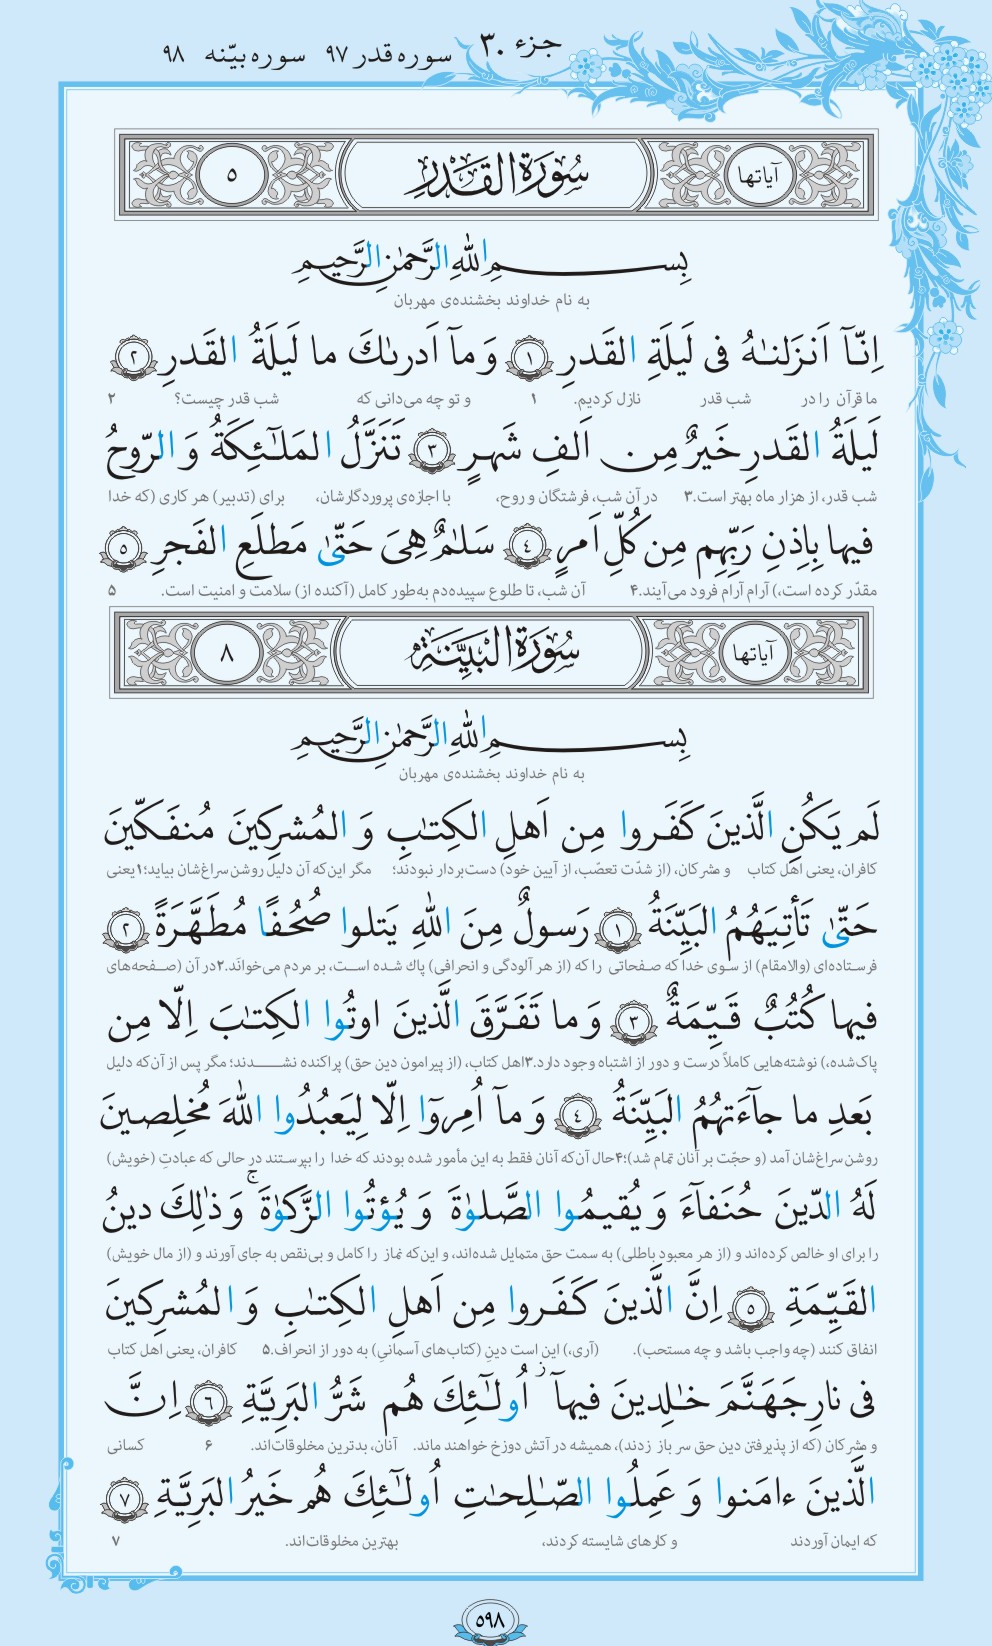 جزء ۳۰ سوره قدر ۹۷ سوره بیّنه ۹۸
آیاتها سُورَةُ القَدرِ ٥
بِسمِ اللّٰهِ الرَّحمٰنِ الرَّحیمِ
به نام خداوند بخشنده‌ی مهربان
اِنّـآ اَنزَلنـٰهُ فی لَیلَةِ القَدرِ ١ وَ مآ اَدرىٰكَ ما لَیلَةُ القَدرِ ٢
ما قرآن را در شب قدر نازل کردیم. ۱ و تو چه می‌دانی که شب قدر چیست؟ ۲
لَیلَةُ القَدرِ خَیرٌ مِن اَلفِ شَهرٍ ٣ تَنَزَّلُ المَلٰٓئِکَةُ وَ الرّوحُ
شب قدر، از هزار ماه بهتر است.۳ در آن شب، فرشتگان و روح، با اجازه‌ی پروردگارشان، برای (تدبیر) هر کاری (که خدا
فیها بِاِذنِ رَبِّهِم مِن کُلِّ اَمرٍ ٤ سَلـٰمٌ هِیَ حَتّىٰ مَطلَعِ الفَجرِ ٥
مقدّر کرده است،) آرام آرام فرود می‌آیند.۴ آن شب، تا طلوع سپیده‌دم به‌طور کامل (آکنده از) سلامت و امنیت است. ۵
آیاتها سُورَةُ البَیِّنَةِ ٨
بِسمِ اللّٰهِ الرَّحمٰنِ الرَّحیمِ
به نام خداوند بخشنده‌ی مهربان
لَم یَکُنِ الَّذینَ کَفَروا مِن اَهلِ الکِتـٰبِ وَ المُشرِکینَ مُنفَکّینَ
کافران، یعنی اهل کتاب و مشرکان، (از شدّت تعصّب، از آیین خود) دست‌بردار نبودند؛ مگر این‌که آن دلیل روشن سراغ‌شان بیاید؛۱یعنی
حَتّىٰ تَأتِیَهُمُ البَیِّنَةُ ١ رَسولٌ مِنَ اللّٰهِ یَتلوا صُحُفًا مُطَهَّرَةً ٢
فرستاده‌ای (والامقام) از سوی خدا که صفحاتی را که (از هر آلودگی و انحرافی) پاك شده است، بر مردم می‌خوانَد.۲در آن (صفحه‌های
فیها کُتُبٌ قَیِّمَةٌ ٣ وَ ما تَفَرَّقَ الَّذینَ اوتُوا الکِتـٰبَ اِلّا مِن
پاک‌شده،) نوشته‌هایی کاملاً درست و دور از اشتباه وجود دارد.۳اهل کتاب، (از پیرامون دین حق) پراکنده نشـــدند؛ مگر پس از آن‌که دلیل
بَعدِ ما جآءَتهُمُ البَیِّنَةُ ٤ وَ مآ اُمِروٓا اِلّا لِیَعبُدُوا اللّٰهَ مُخلِصینَ
روشن سراغ‌شان آمد (و حجّت بر آنان تمام شد)؛۴حال آن‌که آنان فقط به این مأمور شده بودند که خدا را بپرستند در حالی که عبادتِ (خویش)
لَهُ الدّینَ حُنَفآءَ وَ یُقیمُوا الصَّلوٰةَ وَ یُؤتُوا الزَّکوٰةَ ۚ وَ ذٰلِكَ دینُ
را برای او خالص کرده‌اند و (از هر معبود باطلی) به سمت حق متمایل شده‌اند، و این‌که نماز را کامل و بی‌نقص به جای آورند و (از مال خویش)
القَیِّمَةِ ٥ اِنَّ الَّذینَ کَفَروا مِن اَهلِ الکِتـٰبِ وَ المُشرِکینَ
انفاق کنند (چه واجب باشد و چه مستحب). (آری،) این است دینِ (کتاب‌های آسمانیِ) به دور از انحراف.۵ کافران، یعنی اهل کتاب
فی نارِ جَهَنَّمَ خـٰلِدینَ فیهآ ز اُولـٰٓئِكَ هُم شَرُّ البَرِیَّةِ ٦ اِنَّ
و مشرکان (که از پذیرفتن دین حق سر باز زدند)، همیشه در آتش دوزخ خواهند ماند. آنان، بدترین مخلوقات‌اند. ۶ کسانی
الَّذینَ ءامَنوا وَ عَمِلُوا الصّـٰلِحـٰتِ اُولـٰٓئِكَ هُم خَیرُ البَرِیَّةِ ٧
که ایمان آوردند و کارهای شایسته کردند، بهترین مخلوقات‌اند. ۷
۵۹۸